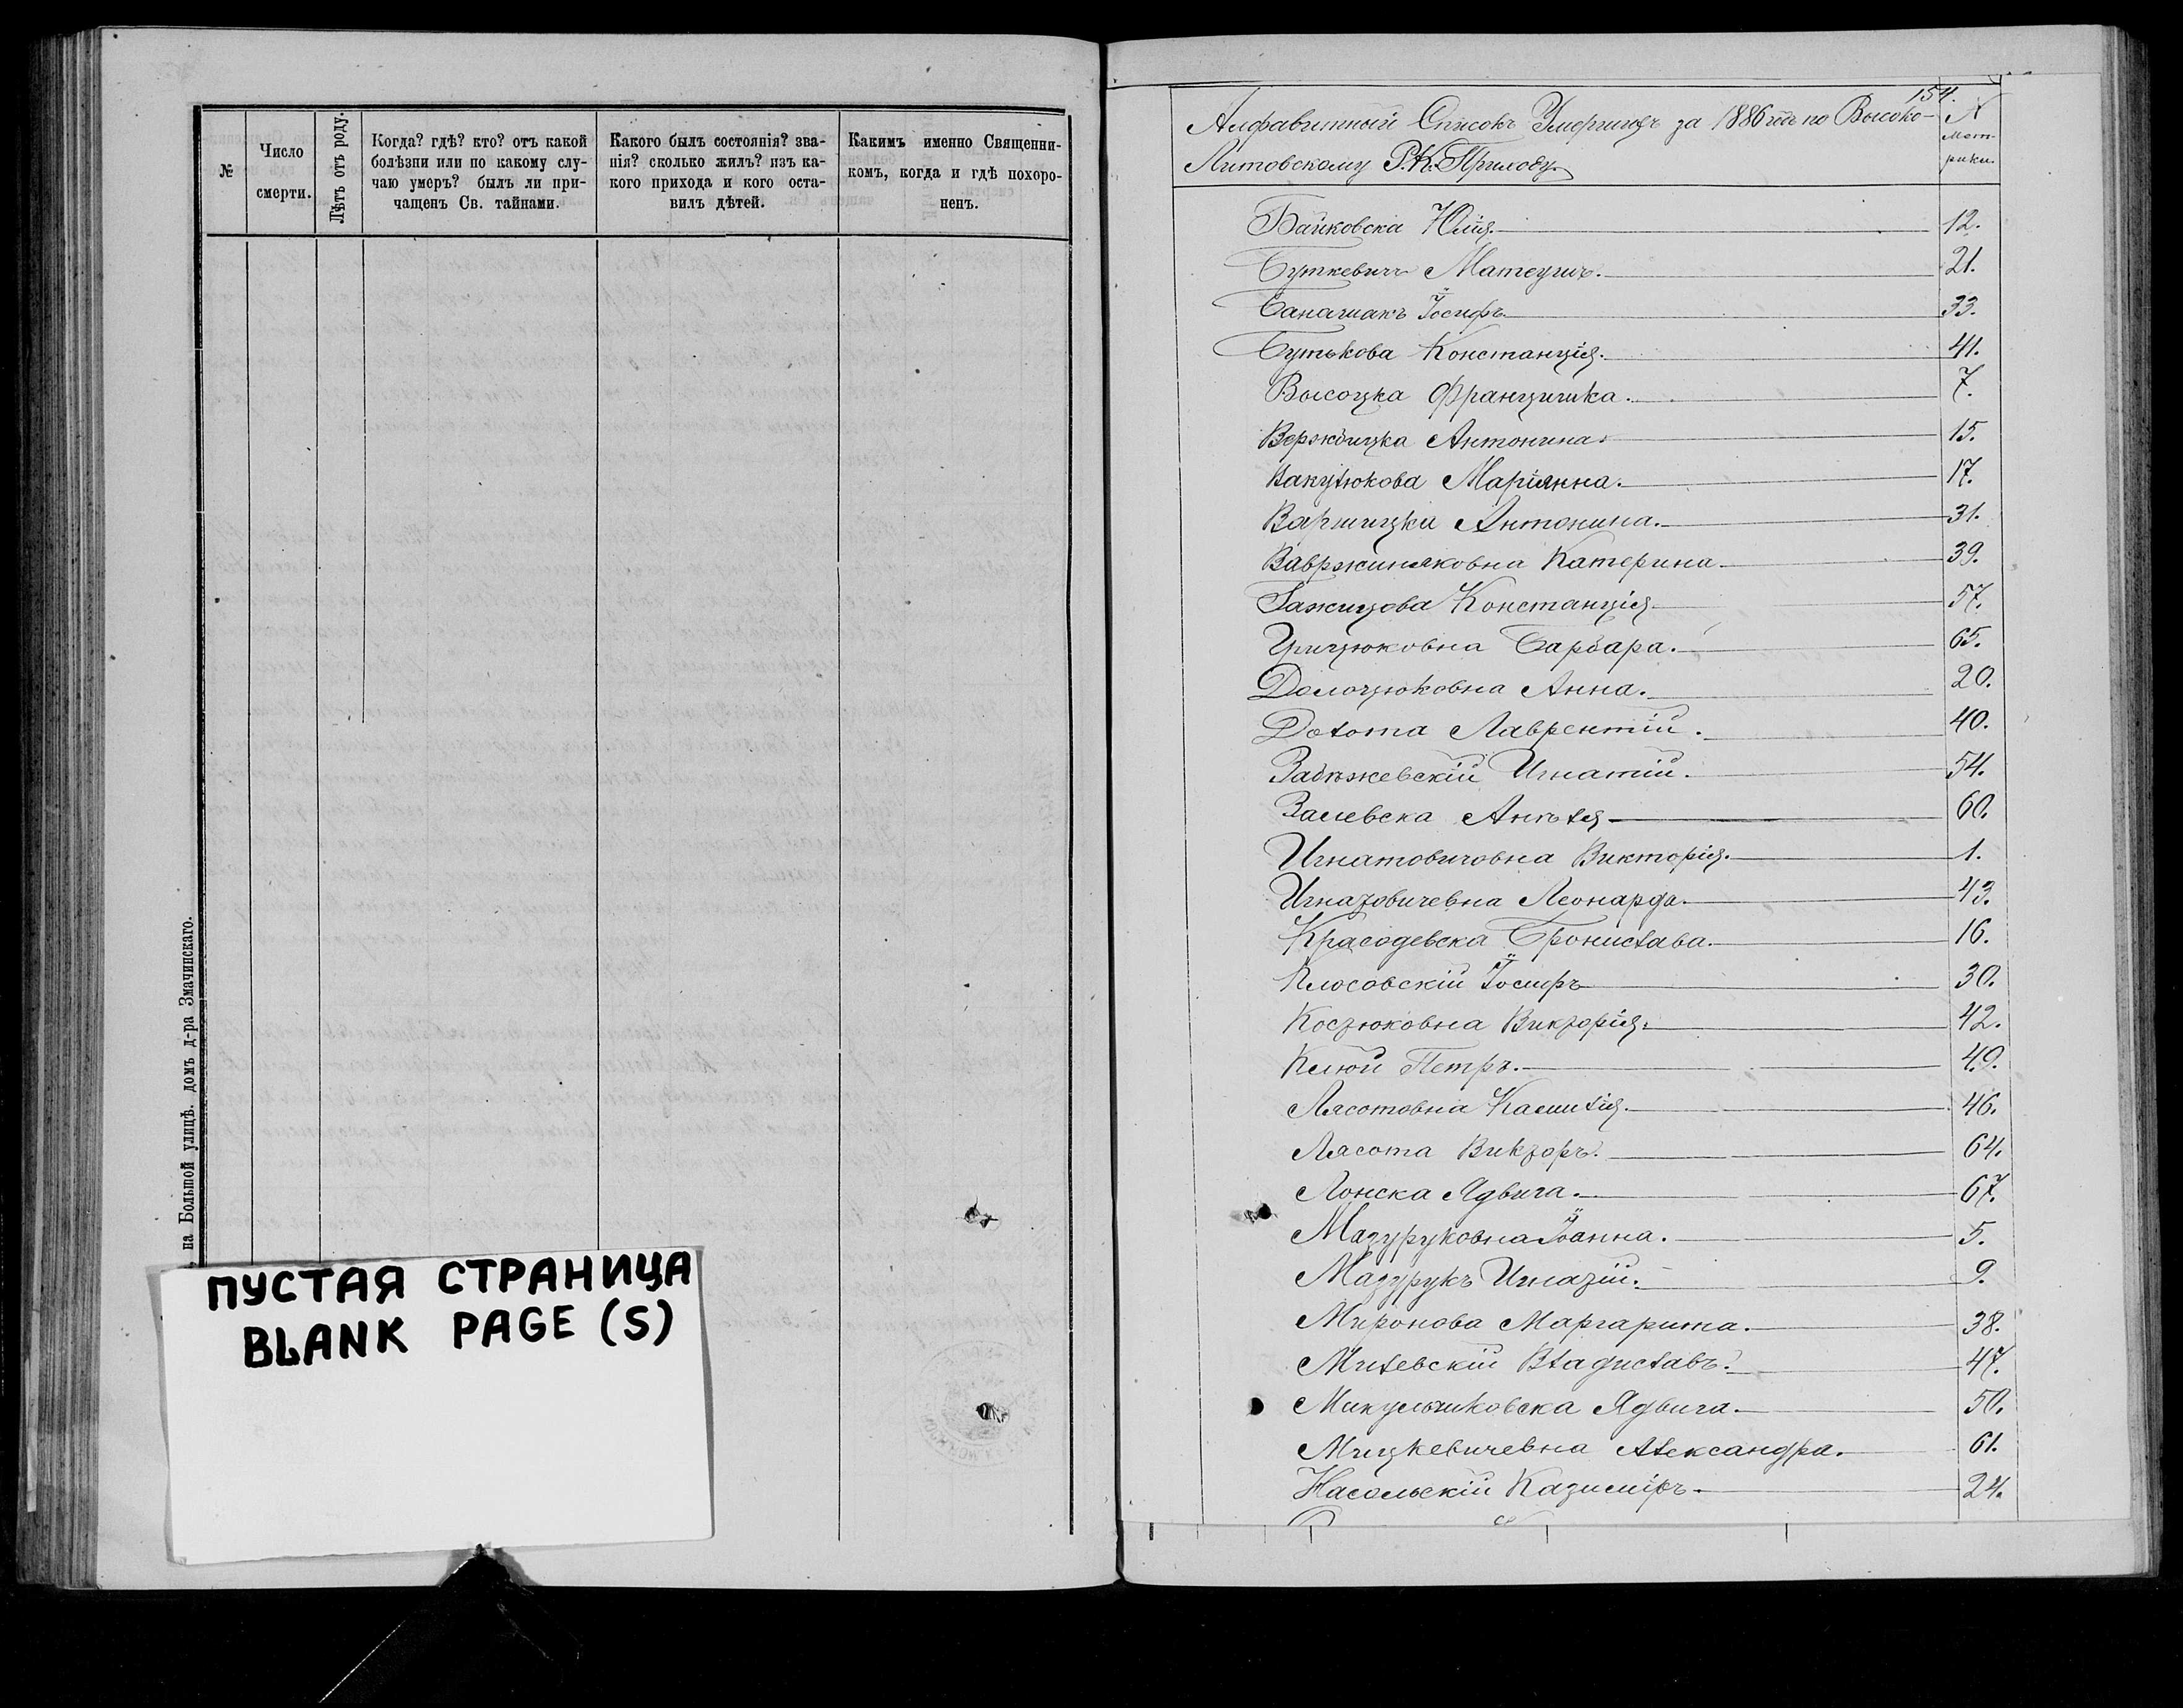 №
Число
смерти.
Лѣтъ отъ роду.
Когда? гдѣ? кто? отъ какой
болѣзни или по какому слу-
чаю умеръ? былъ ли при-
чащенъ Св. тайнами.
Какого былъ состоянія? зва-
нія? сколько жилъ? изъ ка-
кого прихода и кого оста-
вилъ дѣтей.
Какимъ именно Священни-
комъ, когда и гдѣ похоро-
ненъ.
на Большой улицѣ. домъ д-ра Змачинскаго.
ПУСТАЯ СТРАНИЦА
BLANK PAGE (S)
154.
Алфавитный Списокъ Умершихъ за 1886 годъ по Высоко-
Литовскому Р. К. Приходу.
N
Мет-
рики.
Байковска Юлія. 12.
Буткевичъ Матеушъ. 21.
Банашакъ Іосифъ 33.
Бутькова Констанція. 41.
Высоцка Францишка. 7.
Вержбицка Антонина. 15.
Вакулюкова Маріянна. 17.
Варшицка Антонина. 31.
Вавржиняковна Катерина. 39.
Гажицова Констанція. 57.
Грицюковна Барбара. 65.
Долоцюковна Анна. 20.
Долота Лаврентій. 40.
Забѣжевскій Игнатій. 54.
Залевска Анѣля 60.
Игнатовичовна Викторія. 1.
Игнатовичевна Леонарда. 43.
Красодевска Бронислава. 16.
Клосовскій Іосифъ 30.
Костюковна Викторія. 42.
Клюй Петръ. 49.
Лясотовна Камилія. 46.
Лясота Викторъ. 64.
Лонска Ядвига. 67.
Мазуруковна Іоанна. 5.
Мазурукъ Игнатій. 9.
Миронова Маргарита. 38.
Милевскій Владиславъ. 47.
Микульчиковска Ядвига. 50.
Мицкевичевна Александра. 61.
Насольскій Казиміръ. 24.